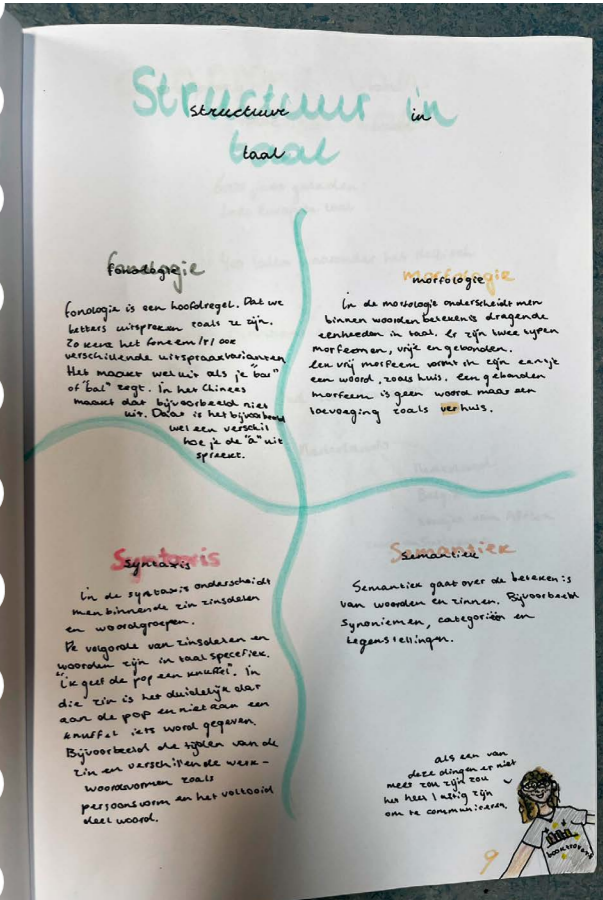 Structuur in
taal
structuur in
taal
fonologie
fonologie
fonologie is een hoofdregel. Dat we
letters uitspreken zoals ze zijn.
Zo kent het foneem /r/ ook
verschillende uitspraakvarianten
Het maakt wel uit als je "bar"
of "bal" zegt. In het Chinees
maakt dat bijvoorbeeld niet
uit. Daar is het bijvoorbeeld
wel een verschil
hoe je de "a" uit
spreekt.
morfologie
morfologie
In de morfologie onderscheidt men
binnen woorden betekenis dragende
eenheden in taal. er zijn twee typen
morfeemen, vrije en gebonden.
Een vrij morfeem vormt in zijn eentje
een woord, zoals huis. Een gebonden
morfeem is geen woord maar een
toevoeging zoals verhuis.
Syntaxis
syntaxis
In de syntaxis onderscheidt
men binnen de zin zinsdelen
en woordgroepen.
De volgorde van zinsdelen en
woorden zijn in taal specefiek.
"ik geef de pop een knuffel". In
die zin is het duidelijk dat
aan de pop en niet aan een
knuffel iets word gegeven.
Bijvoorbeeld de tijden van de
zin en verschillende werk-
woordvormen zoals
persoonsvorm en het voltooid
deel woord.
Semantiek
semantiek
Semantiek gaat over de betekenis
van woorden en zinnen. Bijvoorbeeld
Synoniemen, categorieën en
tegenstellingen.
als een van
deze dingen er niet
meer zou zijn zou
het heel lastig zijn
om te communiceren.
9